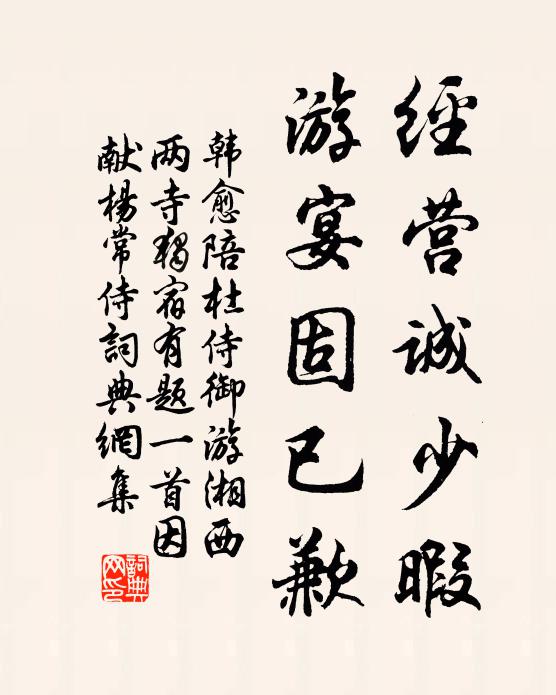 經营誠少暇
游宴固已歉
韩愈陪杜侍御游湘西
两寺獨宿有题一首因
献楊常侍詞典網集
詞典
网印